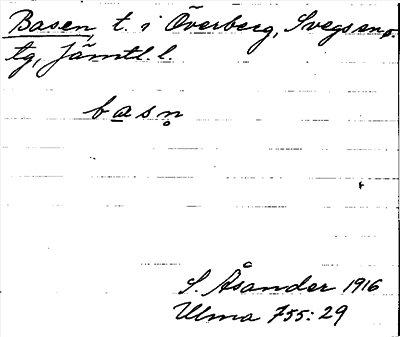 Basen, t. i Överberg, Svegs sn o.
tg, Jämtl. l.
basn̥
S. Åsander 1916
Ulma 755:29